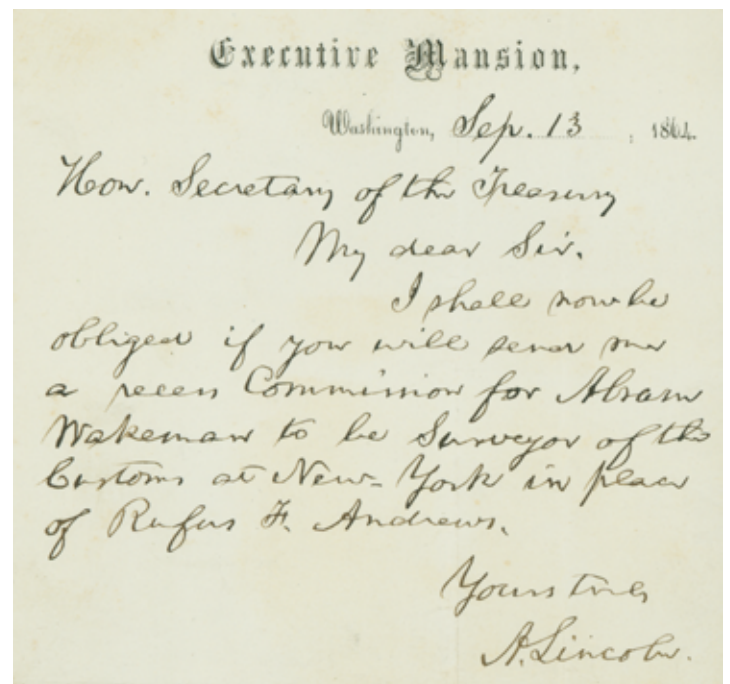 Executive Mansion,
Washington, Sep. 13, 1864.
Hon. Secretary of the Treasury
My dear Sir.
I shall now be
obliged if you will send me
a recess Commission for Abram
Wakeman to be Surveyor of the
Customs at New-York in place
of Rufus F. Andrews.
Yours truly
A. Lincoln.